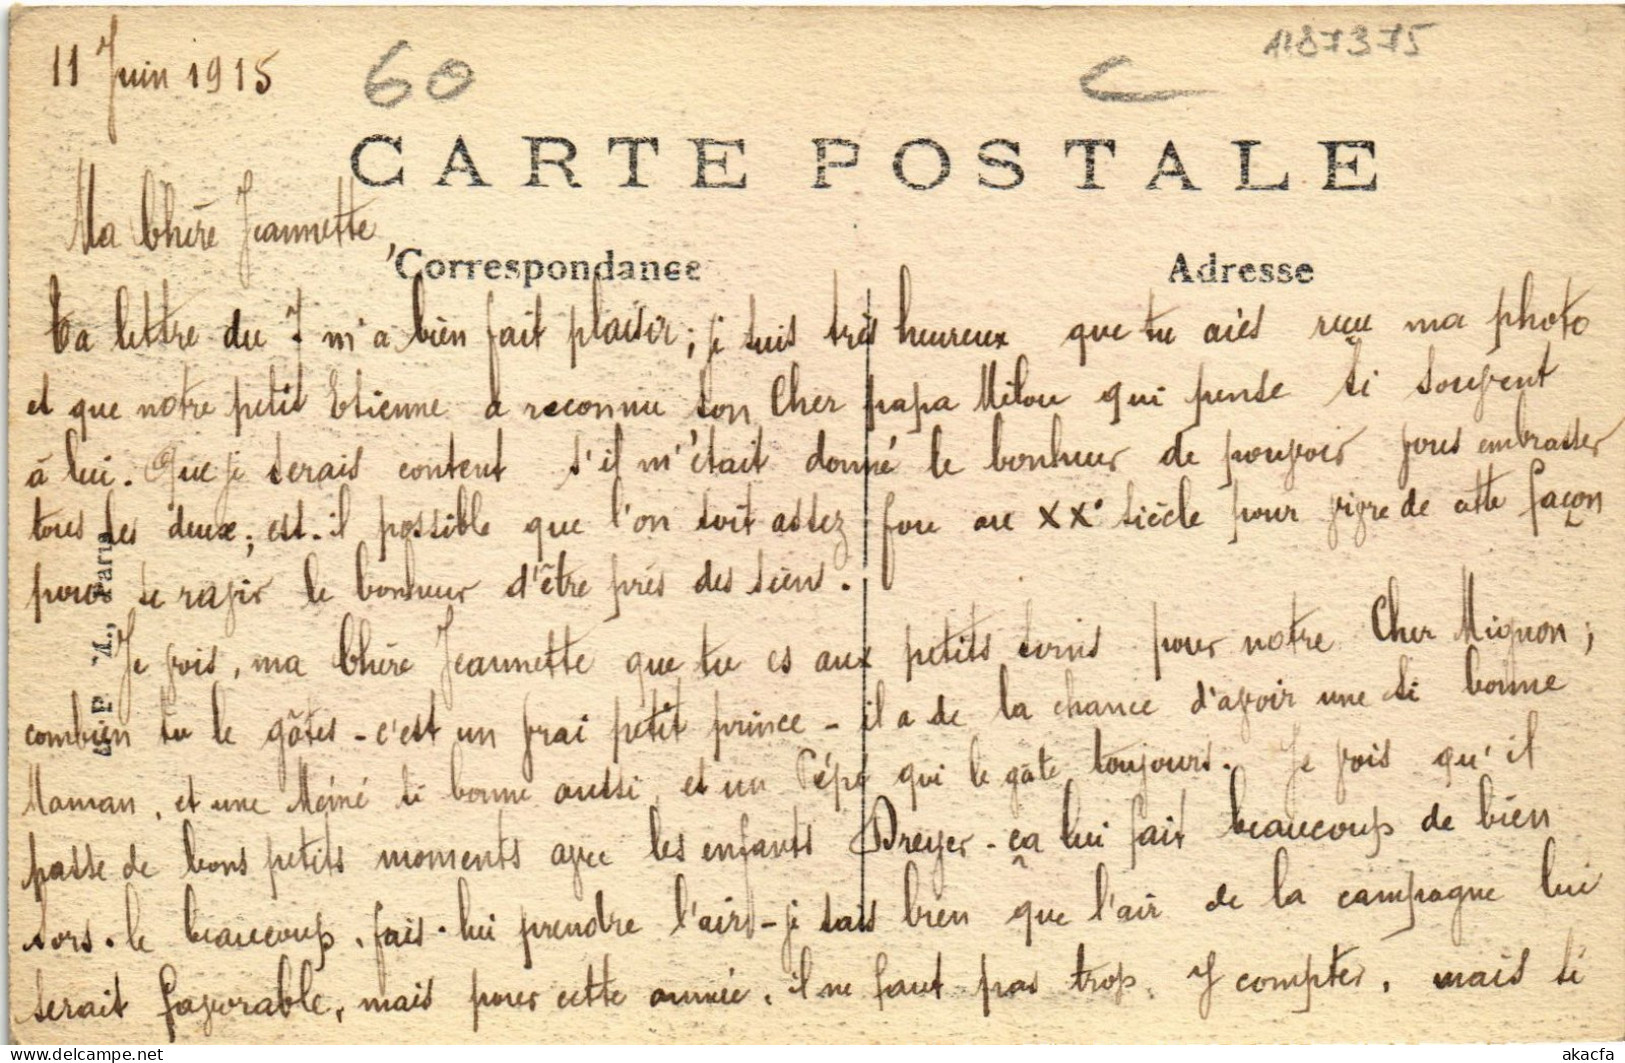 11 Juin 1915
60
C
1187375
CARTE POSTALE
Ma Chère Jeannette
Correspondance
Adresse
Ta lettre du 7 m'a bien fait plaisir; je suis très heureux que tu aies reçu ma photo
et que notre petit Etienne a reconnu son Cher papa Milou qui pense si souvent
à lui. Que je serais content s'il m'était donné le bonheur de pouvoir vous embrasser
tous les deux; est-il possible que l'on soit assez fou au XXe siècle pour vivre de cette façon
pour se ravir le bonheur d'être près des siens.
Je vois, ma Chère Jeannette que tu es aux petits soins pour notre Cher Mignon;
combien tu le gâtes - c'est un vrai petit prince - il a de la chance d'avoir une si bonne
Maman, et une Mémé si bonne aussi, et un Pépé qui le gâte toujours. Je vois qu'il
passe de bons petits moments avec les enfants Dreyer - ça lui fait beaucoup de bien
sors-le beaucoup, fais-lui prendre l'air - je sais bien que l'air de la campagne lui
serait favorable, mais pour cette année, il ne faut pas trop y compter, mais si
Paris
akacfa